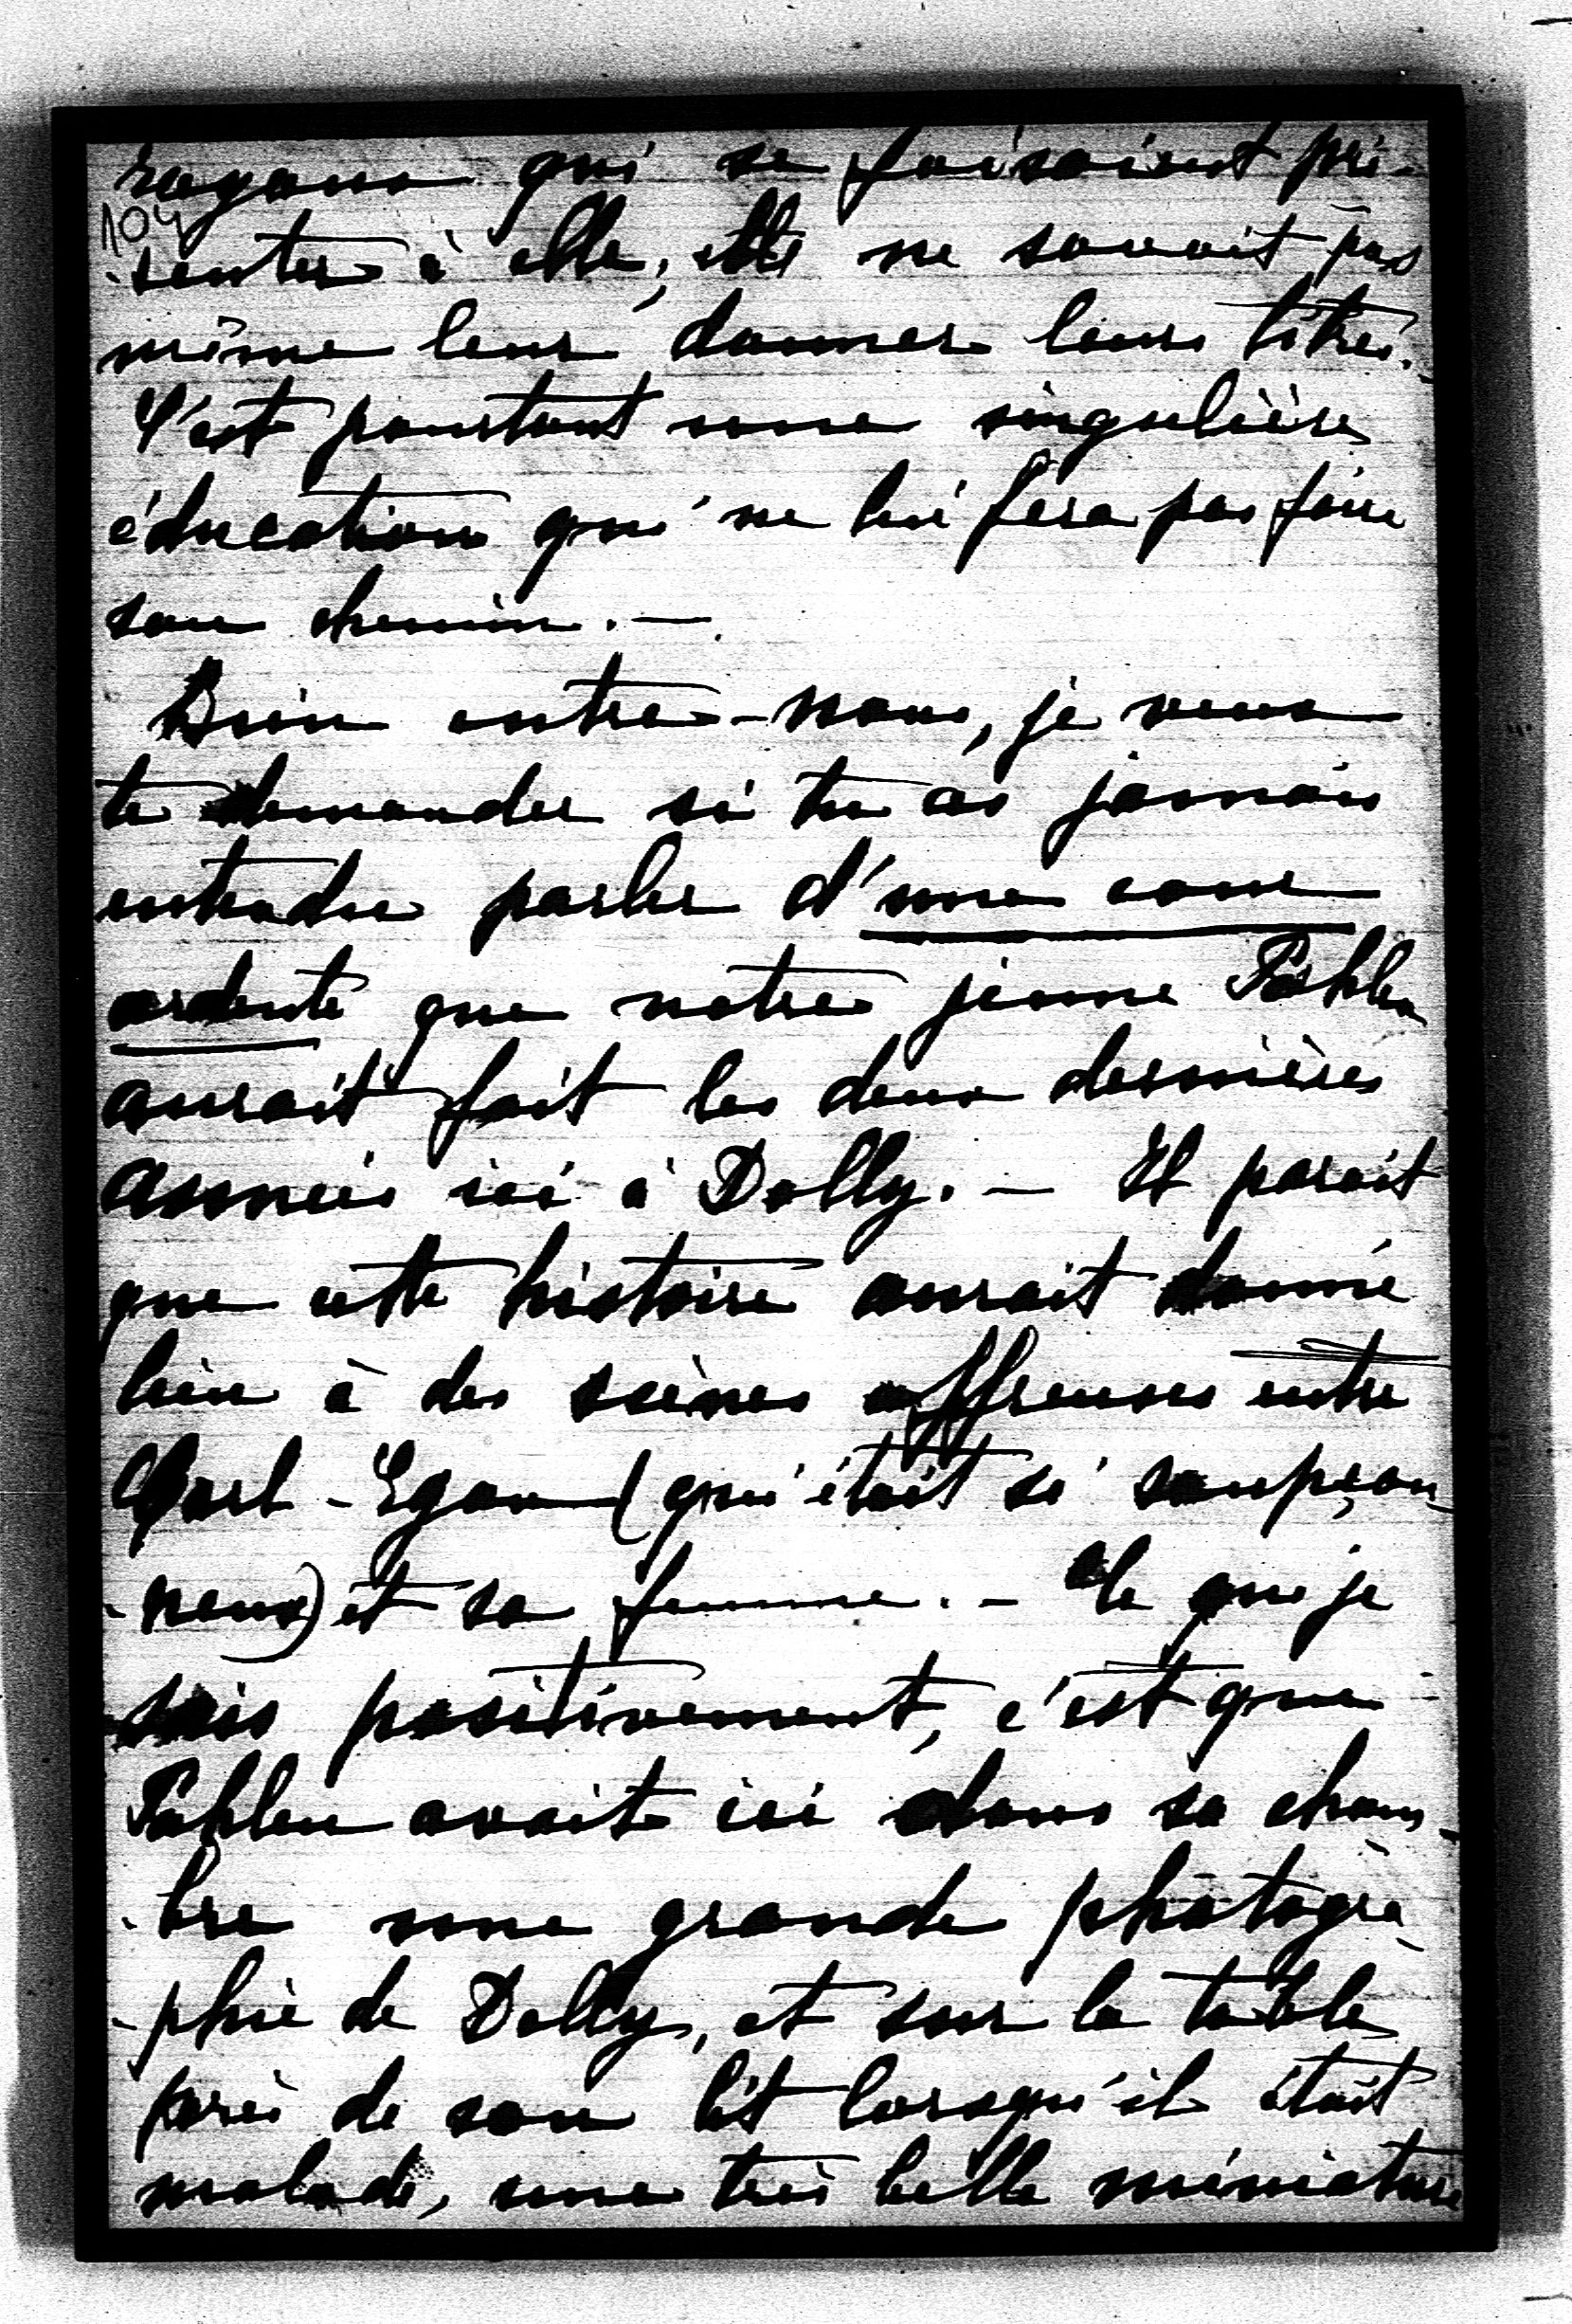 qui se faisaient pré-
104
-senter à elle, elle ne savait pas
même leur donner leurs titres.
C'est pourtant une singulière
éducation qui ne lui fera pas faire
son chemin. —
Bien entre-nous, je veux
te demander si tu as jamais
entendu parler d'une cour
ardente que notre jeune Pahlen
aurait fait les deux dernières
années ici à Dolly. — Il parait
que cette histoire aurait donné
lieu à des scènes affreuses entre
Carl-Egon (qui était si soupçon-
-neux) et sa femme. — Ce que je
sais positivement, c'est que
Pahlen avait ici dans sa cham-
-bre une grande photogra-
-phie de Dolly, et sur la table
près de son lit lorsqu'il était
malade, une très belle miniature